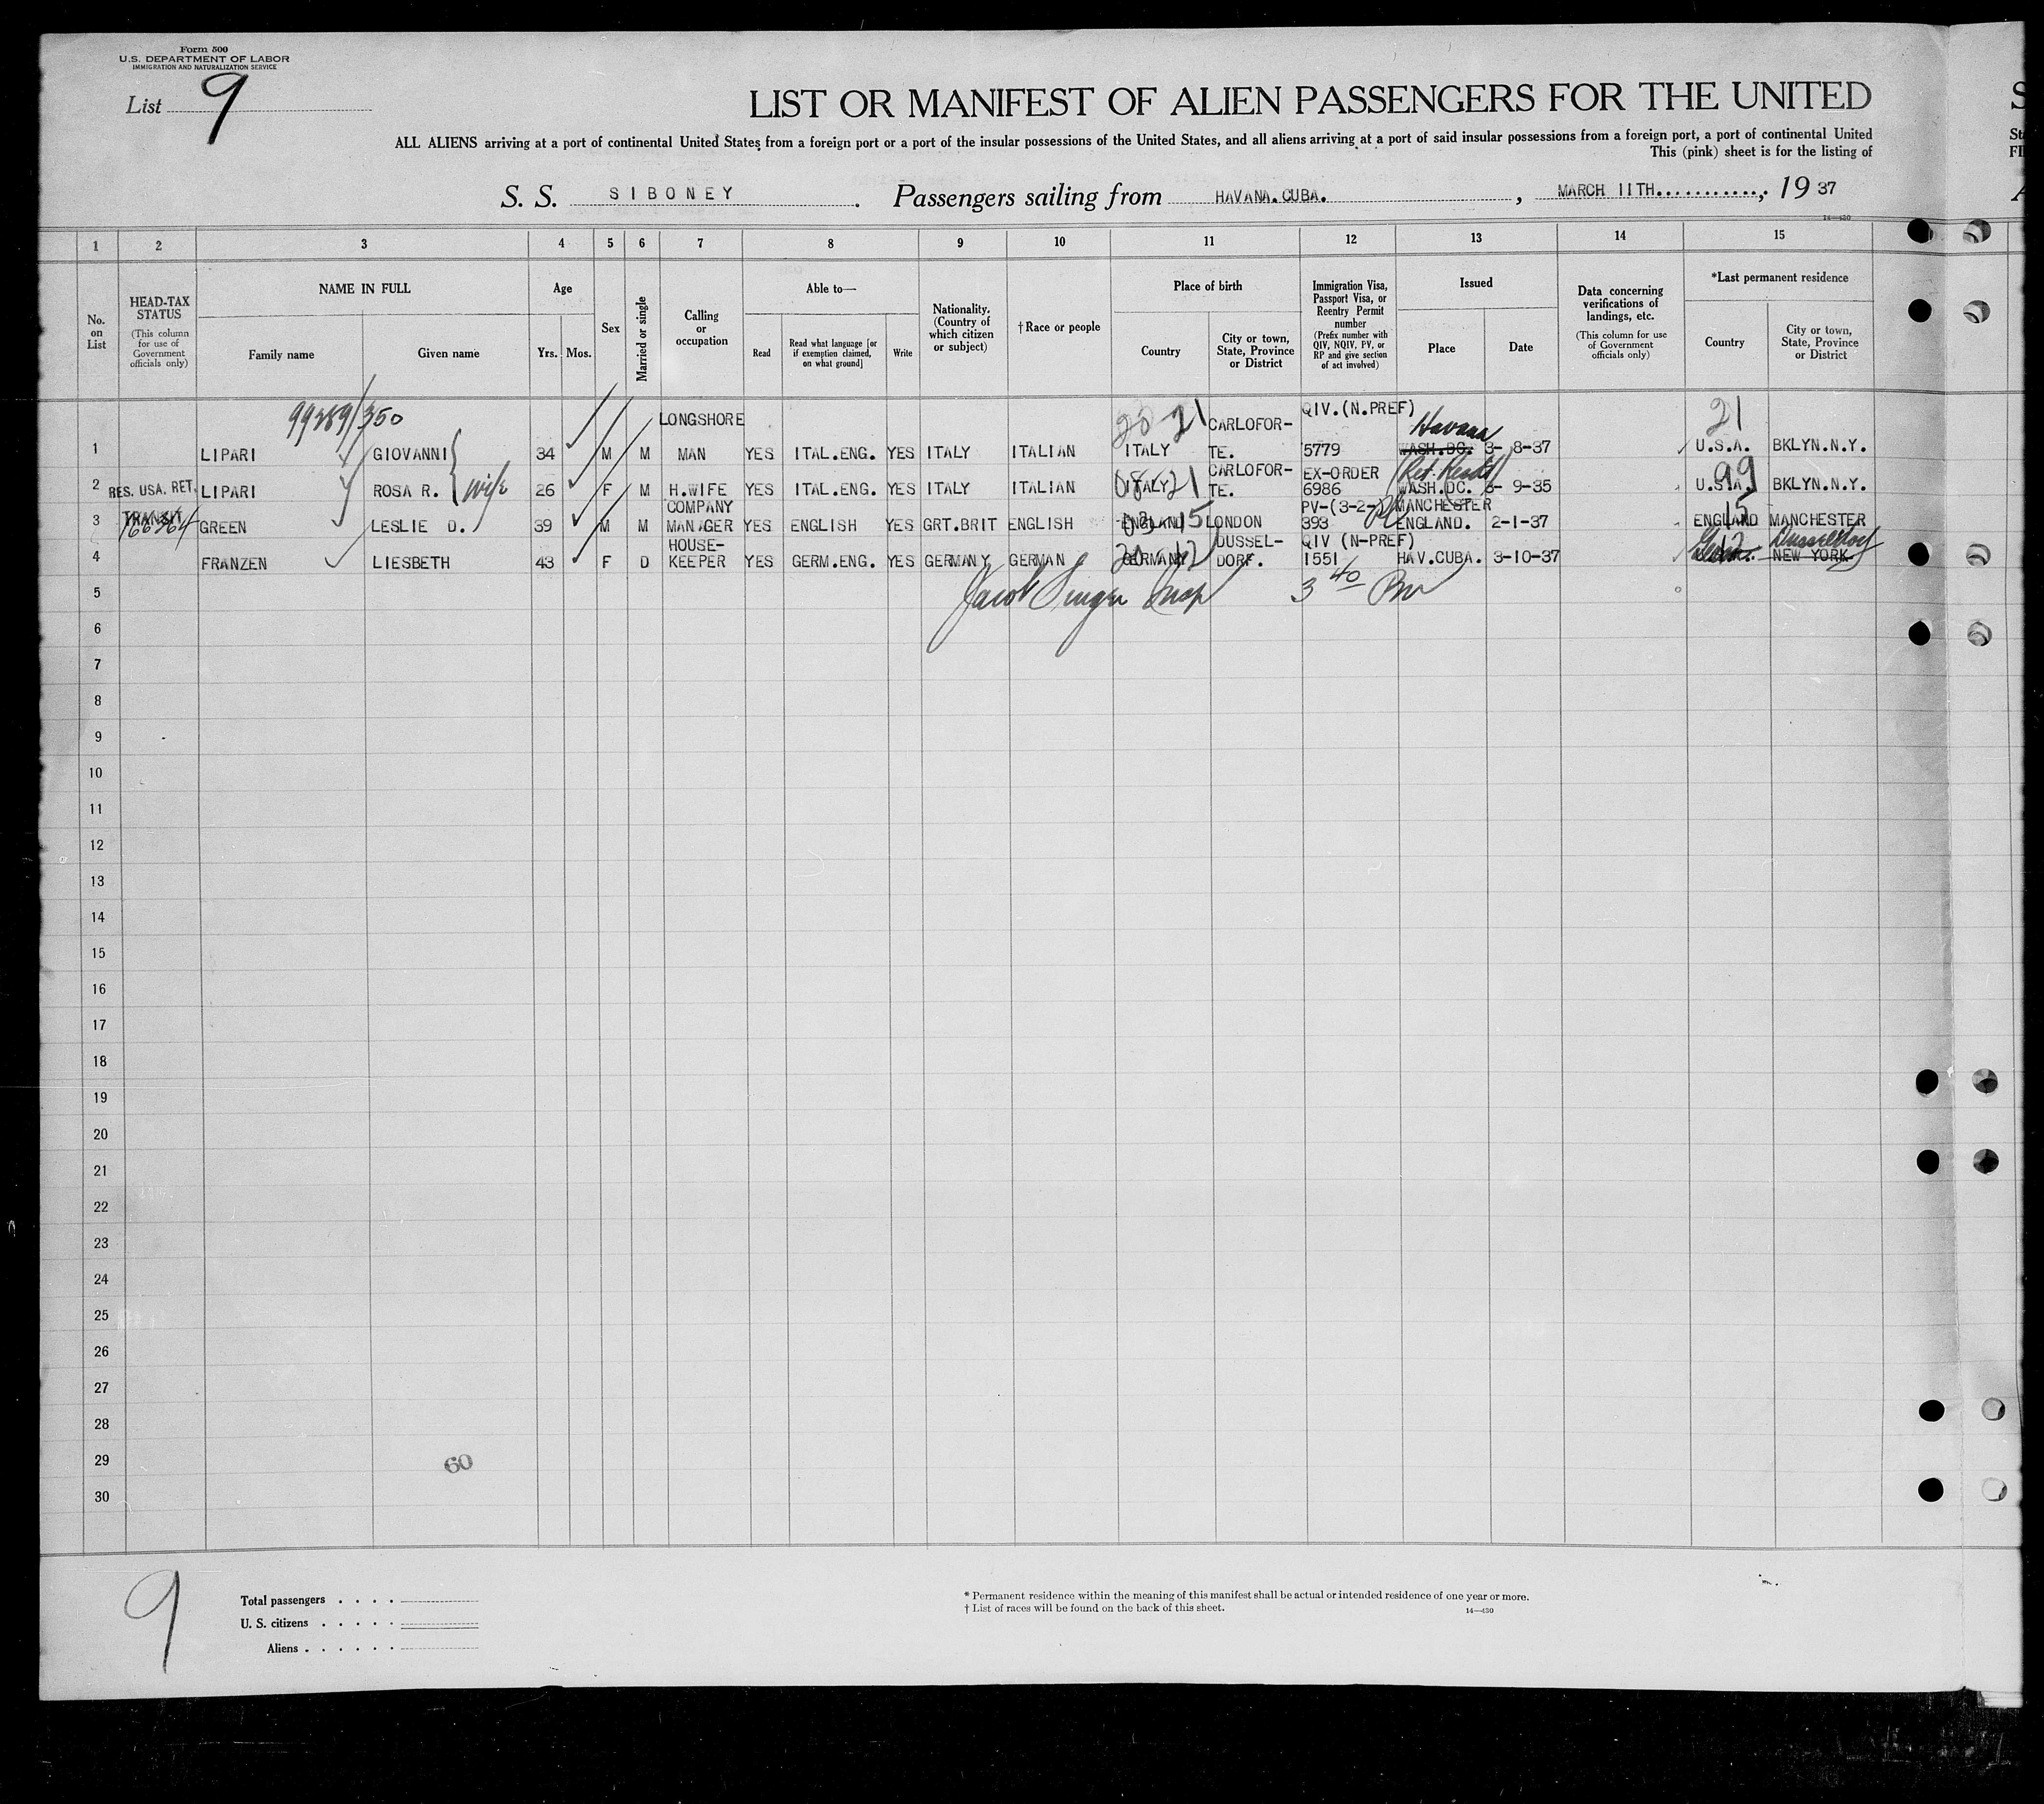 Form 500
U.S. DEPARTMENT OF LABOR
IMMIGRATION AND NATURALIZATION SERVICE
List 9
LIST OR MANIFEST OF ALIEN PASSENGERS FOR THE UNITED
ALL ALIENS arriving at a port of continental United States from a foreign port or a port of the insular possessions of the United States, and all aliens arriving at a port of said insular possessions from a foreign port, a port of continental United
This (pink) sheet is for the listing of
S. S. SIBONEY. Passengers sailing from HAVANA.CUBA. , MARCH 11TH............, 19 37
14—430
1 2 3 4 5 6 7 8 9 10 11 12 13 14 15
No. on List
HEAD-TAX STATUS
(This column for use of Government officials only)
NAME IN FULL
Family name
Given name
Age
Yrs. Mos.
Sex
Married or single
Calling or occupation
Able to—
Read
Read what language [or if exemption claimed, on what ground]
Write
Nationality. (Country of which citizen or subject)
†Race or people
Place of birth
Country
City or town, State, Province or District
Immigration Visa, Passport Visa, or Reentry Permit number
(Prefix number with QIV, NQIV, PV, or RP and give section of act involved)
Issued
Place
Date
Data concerning verifications of landings, etc.
(This column for use of Government officials only)
*Last permanent residence
Country
City or town, State, Province or District
99289/350
LONGSHORE 21 CARLOFOR- QIV.(N.PREF) Havana 21
1 LIPARI GIOVANNI 34 M M MAN YES ITAL.ENG. YES ITALY ITALIAN ITALY TE. 5779 WASH.DC. 3- 8-37 U.S.A. BKLYN.N.Y.
CARLOFOR- EX-ORDER 99
2 RES. USA. RET. LIPARI ROSA R. wife 26 F M H.WIFE YES ITAL.ENG. YES ITALY ITALIAN ITALY 21 TE. 6986 WASH.DC. 3- 9-35 U.S.A. BKLYN.N.Y.
TRANSIT COMPANY PV-(3-2-) MANCHESTER
3 166364 GREEN LESLIE D. 39 M M MANAGER YES ENGLISH YES GRT.BRIT ENGLISH ENGLAND 15 LONDON 393 ENGLAND. 2-1-37 ENGLAND 15 MANCHESTER
HOUSE- DUSSEL- QIV (N-PREF) Dusseldorf
4 FRANZEN LIESBETH 43 F D KEEPER YES GERM.ENG. YES GERMANY GERMAN GERMANY 12 DORF. 1551 HAV.CUBA. 3-10-37 12 NEW YORK
5 Jacob Singer Insp 3 40
6
7
8
9
10
11
12
13
14
15
16
17
18
19
20
21
22
23
24
25
26
27
28
29 60
30
9
Total passengers . . . .
U. S. citizens . . . . .
Aliens . . . . . .
* Permanent residence within the meaning of this manifest shall be actual or intended residence of one year or more.
† List of races will be found on the back of this sheet.
14—430